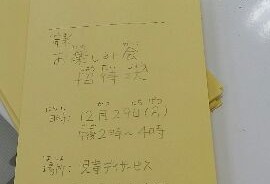 お楽しみ会
招待状
日時: 12月29日(金)
午後2時〜4時
場所: 児童デイサービス